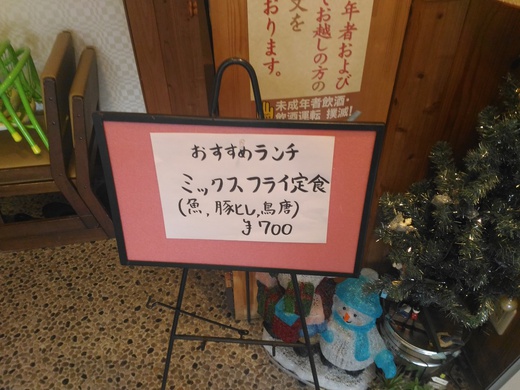 おすすめランチ
ミックスフライ定食
(魚,豚ヒレ,鳥唐)
¥700
年者および
でお越しの方の
文を
おります。
未成年者飲酒・
飲酒運転 撲滅!